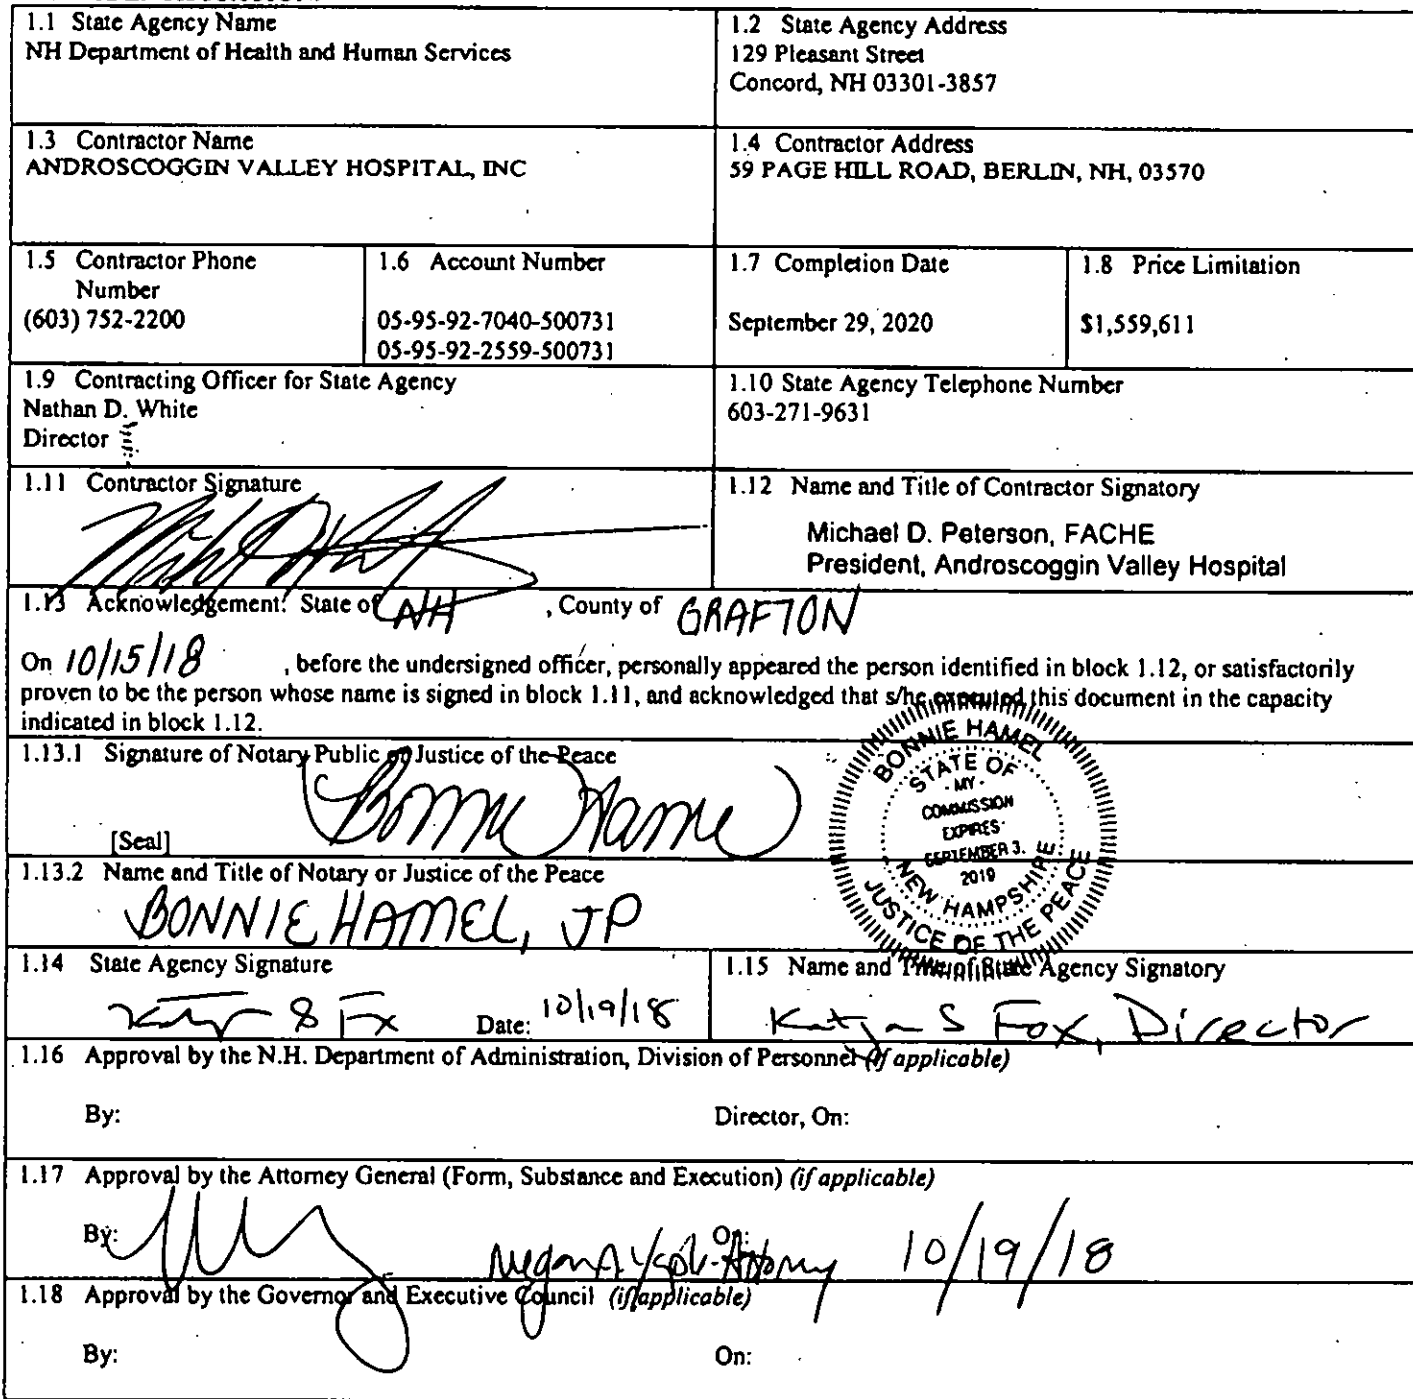 1.1 State Agency Name
NH Department of Health and Human Services
1.2 State Agency Address
129 Pleasant Street
Concord, NH 03301-3857
1.3 Contractor Name
ANDROSCOGGIN VALLEY HOSPITAL, INC
1.4 Contractor Address
59 PAGE HILL ROAD, BERLIN, NH, 03570
1.5 Contractor Phone
Number
(603) 752-2200
1.6 Account Number
05-95-92-7040-500731
05-95-92-2559-500731
1.7 Completion Date
September 29, 2020
1.8 Price Limitation
$1,559,611
1.9 Contracting Officer for State Agency
Nathan D. White
Director
1.10 State Agency Telephone Number
603-271-9631
1.11 Contractor Signature
1.12 Name and Title of Contractor Signatory
Michael D. Peterson, FACHE
President, Androscoggin Valley Hospital
1.13 Acknowledgement: State of NH , County of GRAFTON
On 10/15/18 , before the undersigned officer, personally appeared the person identified in block 1.12, or satisfactorily
proven to be the person whose name is signed in block 1.11, and acknowledged that s/he executed this document in the capacity
indicated in block 1.12.
1.13.1 Signature of Notary Public or Justice of the Peace
Bonnie Hamel
[Seal]
BONNIE HAMEL
STATE OF
MY
COMMISSION
EXPIRES
SEPTEMBER 3,
2019
NEW HAMPSHIRE
JUSTICE OF THE PEACE
1.13.2 Name and Title of Notary or Justice of the Peace
BONNIE HAMEL, JP
1.14 State Agency Signature
Date: 10/19/18
1.15 Name and Title of State Agency Signatory
Katja S Fox, Director
1.16 Approval by the N.H. Department of Administration, Division of Personnel (if applicable)
By:
Director, On:
1.17 Approval by the Attorney General (Form, Substance and Execution) (if applicable)
By:
On: 10/19/18
1.18 Approval by the Governor and Executive Council (if applicable)
By:
On: